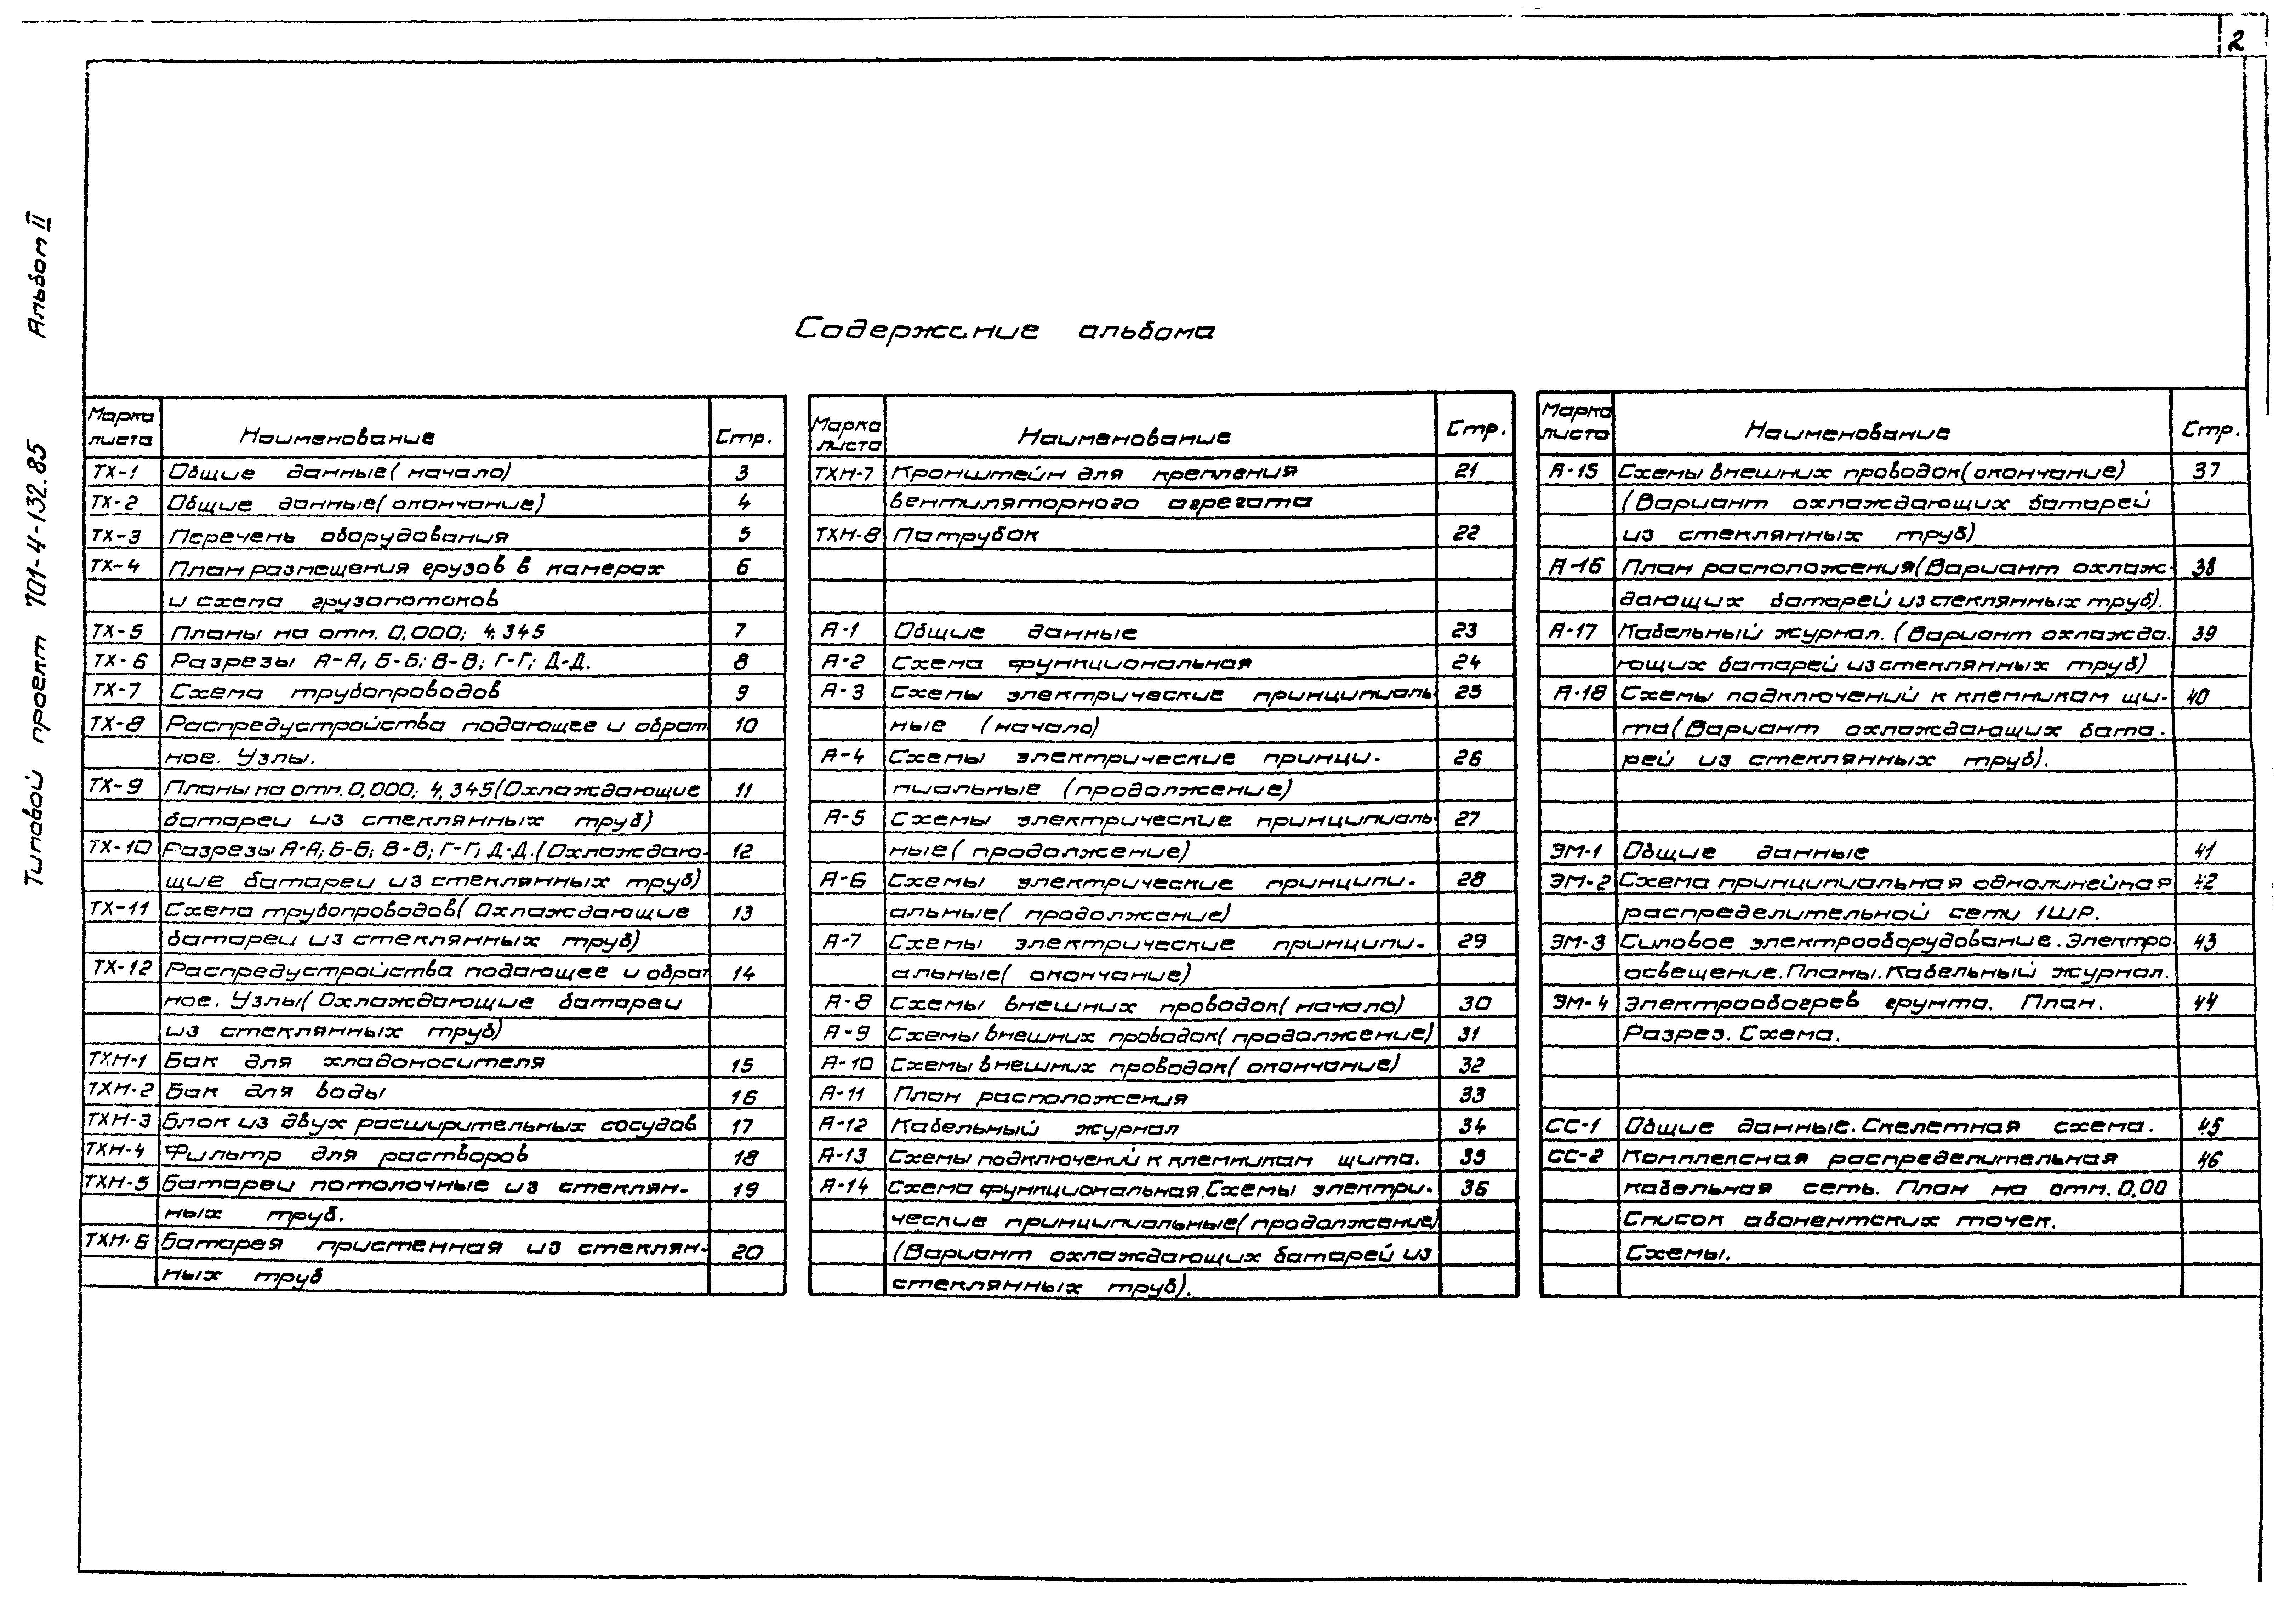 2
Альбом II
Типовой проект 701-4-132.85
Содержание альбома
Марка листа Наименование Стр.
ТХ-1 Общие данные (начало) 3
ТХ-2 Общие данные (окончание) 4
ТХ-3 Перечень оборудования 5
ТХ-4 План размещения грузов в камерах 6
и схема грузопотоков
ТХ-5 Планы на отм. 0,000; 4,345 7
ТХ-6 Разрезы А-А; Б-Б; В-В; Г-Г; Д-Д. 8
ТХ-7 Схема трубопроводов 9
ТХ-8 Распредустройства подающее и обрат 10
ное. Узлы.
ТХ-9 Планы на отм. 0,000; 4,345 (Охлаждающие 11
батареи из стеклянных труб)
ТХ-10 Разрезы А-А; Б-Б; В-В; Г-Г; Д-Д. (Охлаждаю- 12
щие батареи из стеклянных труб)
ТХ-11 Схема трубопроводов (Охлаждающие 13
батареи из стеклянных труб)
ТХ-12 Распредустройства подающее и обрат 14
ное. Узлы (Охлаждающие батареи
из стеклянных труб)
ТХН-1 Бак для хладоносителя 15
ТХН-2 Бак для воды 16
ТХН-3 Блок из двух расширительных сосудов 17
ТХН-4 Фильтр для растворов 18
ТХН-5 Батареи потолочные из стеклян- 19
ных труб.
ТХН-6 Батарея пристенная из стеклян- 20
ных труб
Марка листа Наименование Стр.
ТХН-7 Кронштейн для крепления 21
вентиляторного агрегата
ТХН-8 Патрубок 22
А-1 Общие данные 23
А-2 Схема функциональная 24
А-3 Схемы электрические принципиаль 25
ные (начало)
А-4 Схемы электрические принци- 26
пиальные (продолжение)
А-5 Схемы электрические принципиаль- 27
ные (продолжение)
А-6 Схемы электрические принципи- 28
альные (продолжение)
А-7 Схемы электрические принципи- 29
альные (окончание)
А-8 Схемы внешних проводок (начало) 30
А-9 Схемы внешних проводок (продолжение) 31
А-10 Схемы внешних проводок (окончание) 32
А-11 План расположения 33
А-12 Кабельный журнал 34
А-13 Схемы подключений к клемникам щита. 35
А-14 Схема функциональная. Схемы электри- 36
ческие принципиальные (продолжение)
(Вариант охлаждающих батарей из
стеклянных труб).
Марка листа Наименование Стр.
А-15 Схемы внешних проводок (окончание) 37
(Вариант охлаждающих батарей
из стеклянных труб)
А-16 План расположения (Вариант охлаж- 38
дающих батарей из стеклянных труб).
А-17 Кабельный журнал. (Вариант охлажда- 39
ющих батарей из стеклянных труб)
А-18 Схемы подключений к клемникам щи- 40
та (Вариант охлаждающих бата-
рей из стеклянных труб).
ЭМ-1 Общие данные 41
ЭМ-2 Схема принципиальная однолинейная 42
распределительной сети 1ШР.
ЭМ-3 Силовое электрооборудование. Электро 43
освещение. Планы. Кабельный журнал.
ЭМ-4 Электрообогрев грунта. План. 44
Разрез. Схема.
СС-1 Общие данные. Скелетная схема. 45
СС-2 Комплексная распределительная 46
кабельная сеть. План на отм. 0,00
Список абонентских точек.
Схемы.